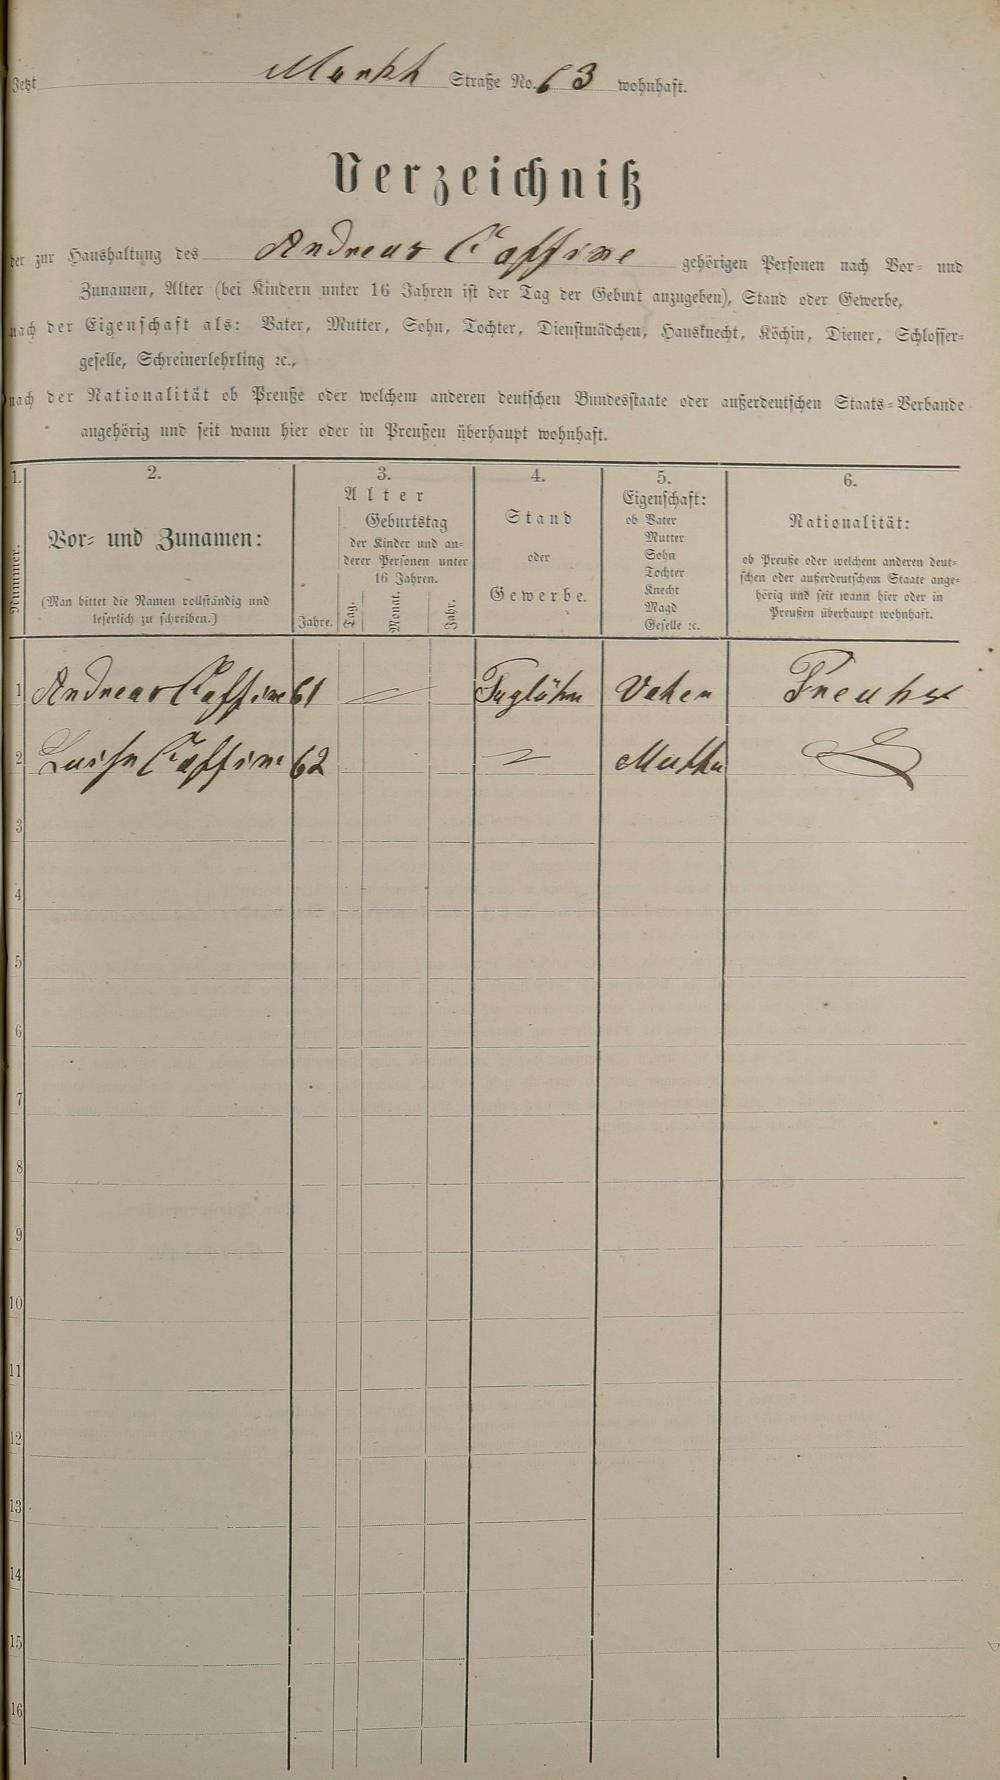 Jetzt Markt Straße No. 63 wohnhaft.
Verzeichniß
der zur Haushaltung des Andreas Caffine gehörigen Personen nach Vor- und
Zunamen, Alter (bei Kindern unter 16 Jahren ist der Tag der Geburt anzugeben), Stand oder Gewerbe,
nach der Eigenschaft als: Vater, Mutter, Sohn, Tochter, Dienstmädchen, Hausknecht, Köchin, Diener, Schlosser-
geselle, Schreinerlehrling ꝛc.,
nach der Nationalität ob Preuße oder welchem anderen deutschen Bundesstaate oder außerdeutschen Staats-Verbande
angehörig und seit wann hier oder in Preußen überhaupt wohnhaft.
1. 2. 3. 4. 5. 6.
Nummer.
Vor- und Zunamen:
(Man bittet die Namen vollständig und
leserlich zu schreiben.)
Alter
Jahre.
Geburtstag
der Kinder und an-
derer Personen unter
16 Jahren.
Tag. Monat. Jahr.
Stand
oder
Gewerbe.
Eigenschaft:
ob Vater
Mutter
Sohn
Tochter
Knecht
Magd
Geselle ꝛc.
Nationalität:
ob Preuße oder welchem anderen deut-
schen oder außerdeutschem Staate ange-
hörig und seit wann hier oder in
Preußen überhaupt wohnhaft.
1 Andreas Caffine 61 Taglöhn Vater Preuße
2 Luise Caffine 62 Mutter
3
4
5
6
7
8
9
10
11
12
13
14
15
16